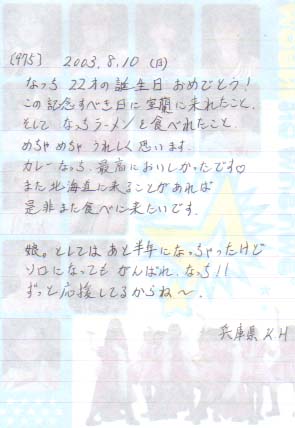 (975) 2003.8.10 (日)
なっち 22才の誕生日 おめでとう!
この記念すべき日に室蘭に来れたこと、
そして なっちラーメンを食べれたこと
めちゃめちゃ うれしく思います。
カレーなっち、最高においしかったです♡
また北海道に来ることがあれば
是非また食べに来たいです。
娘。としては あと半年になっちゃったけど
ソロになっても がんばれ、なっち!!
ずっと応援してるからね〜。
兵庫県 K.H